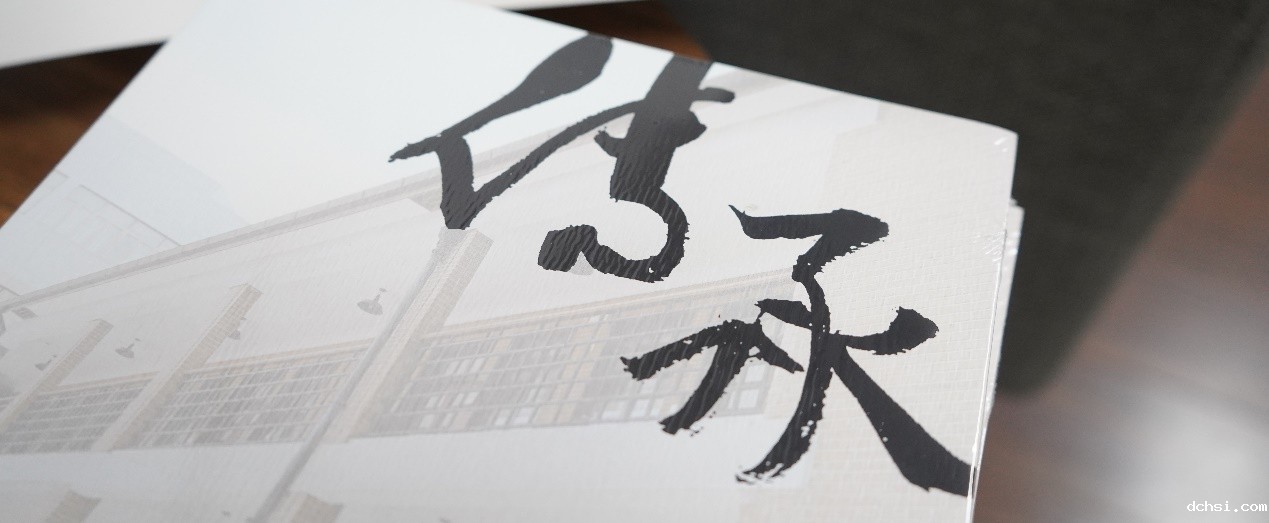 传承
dchsi.com